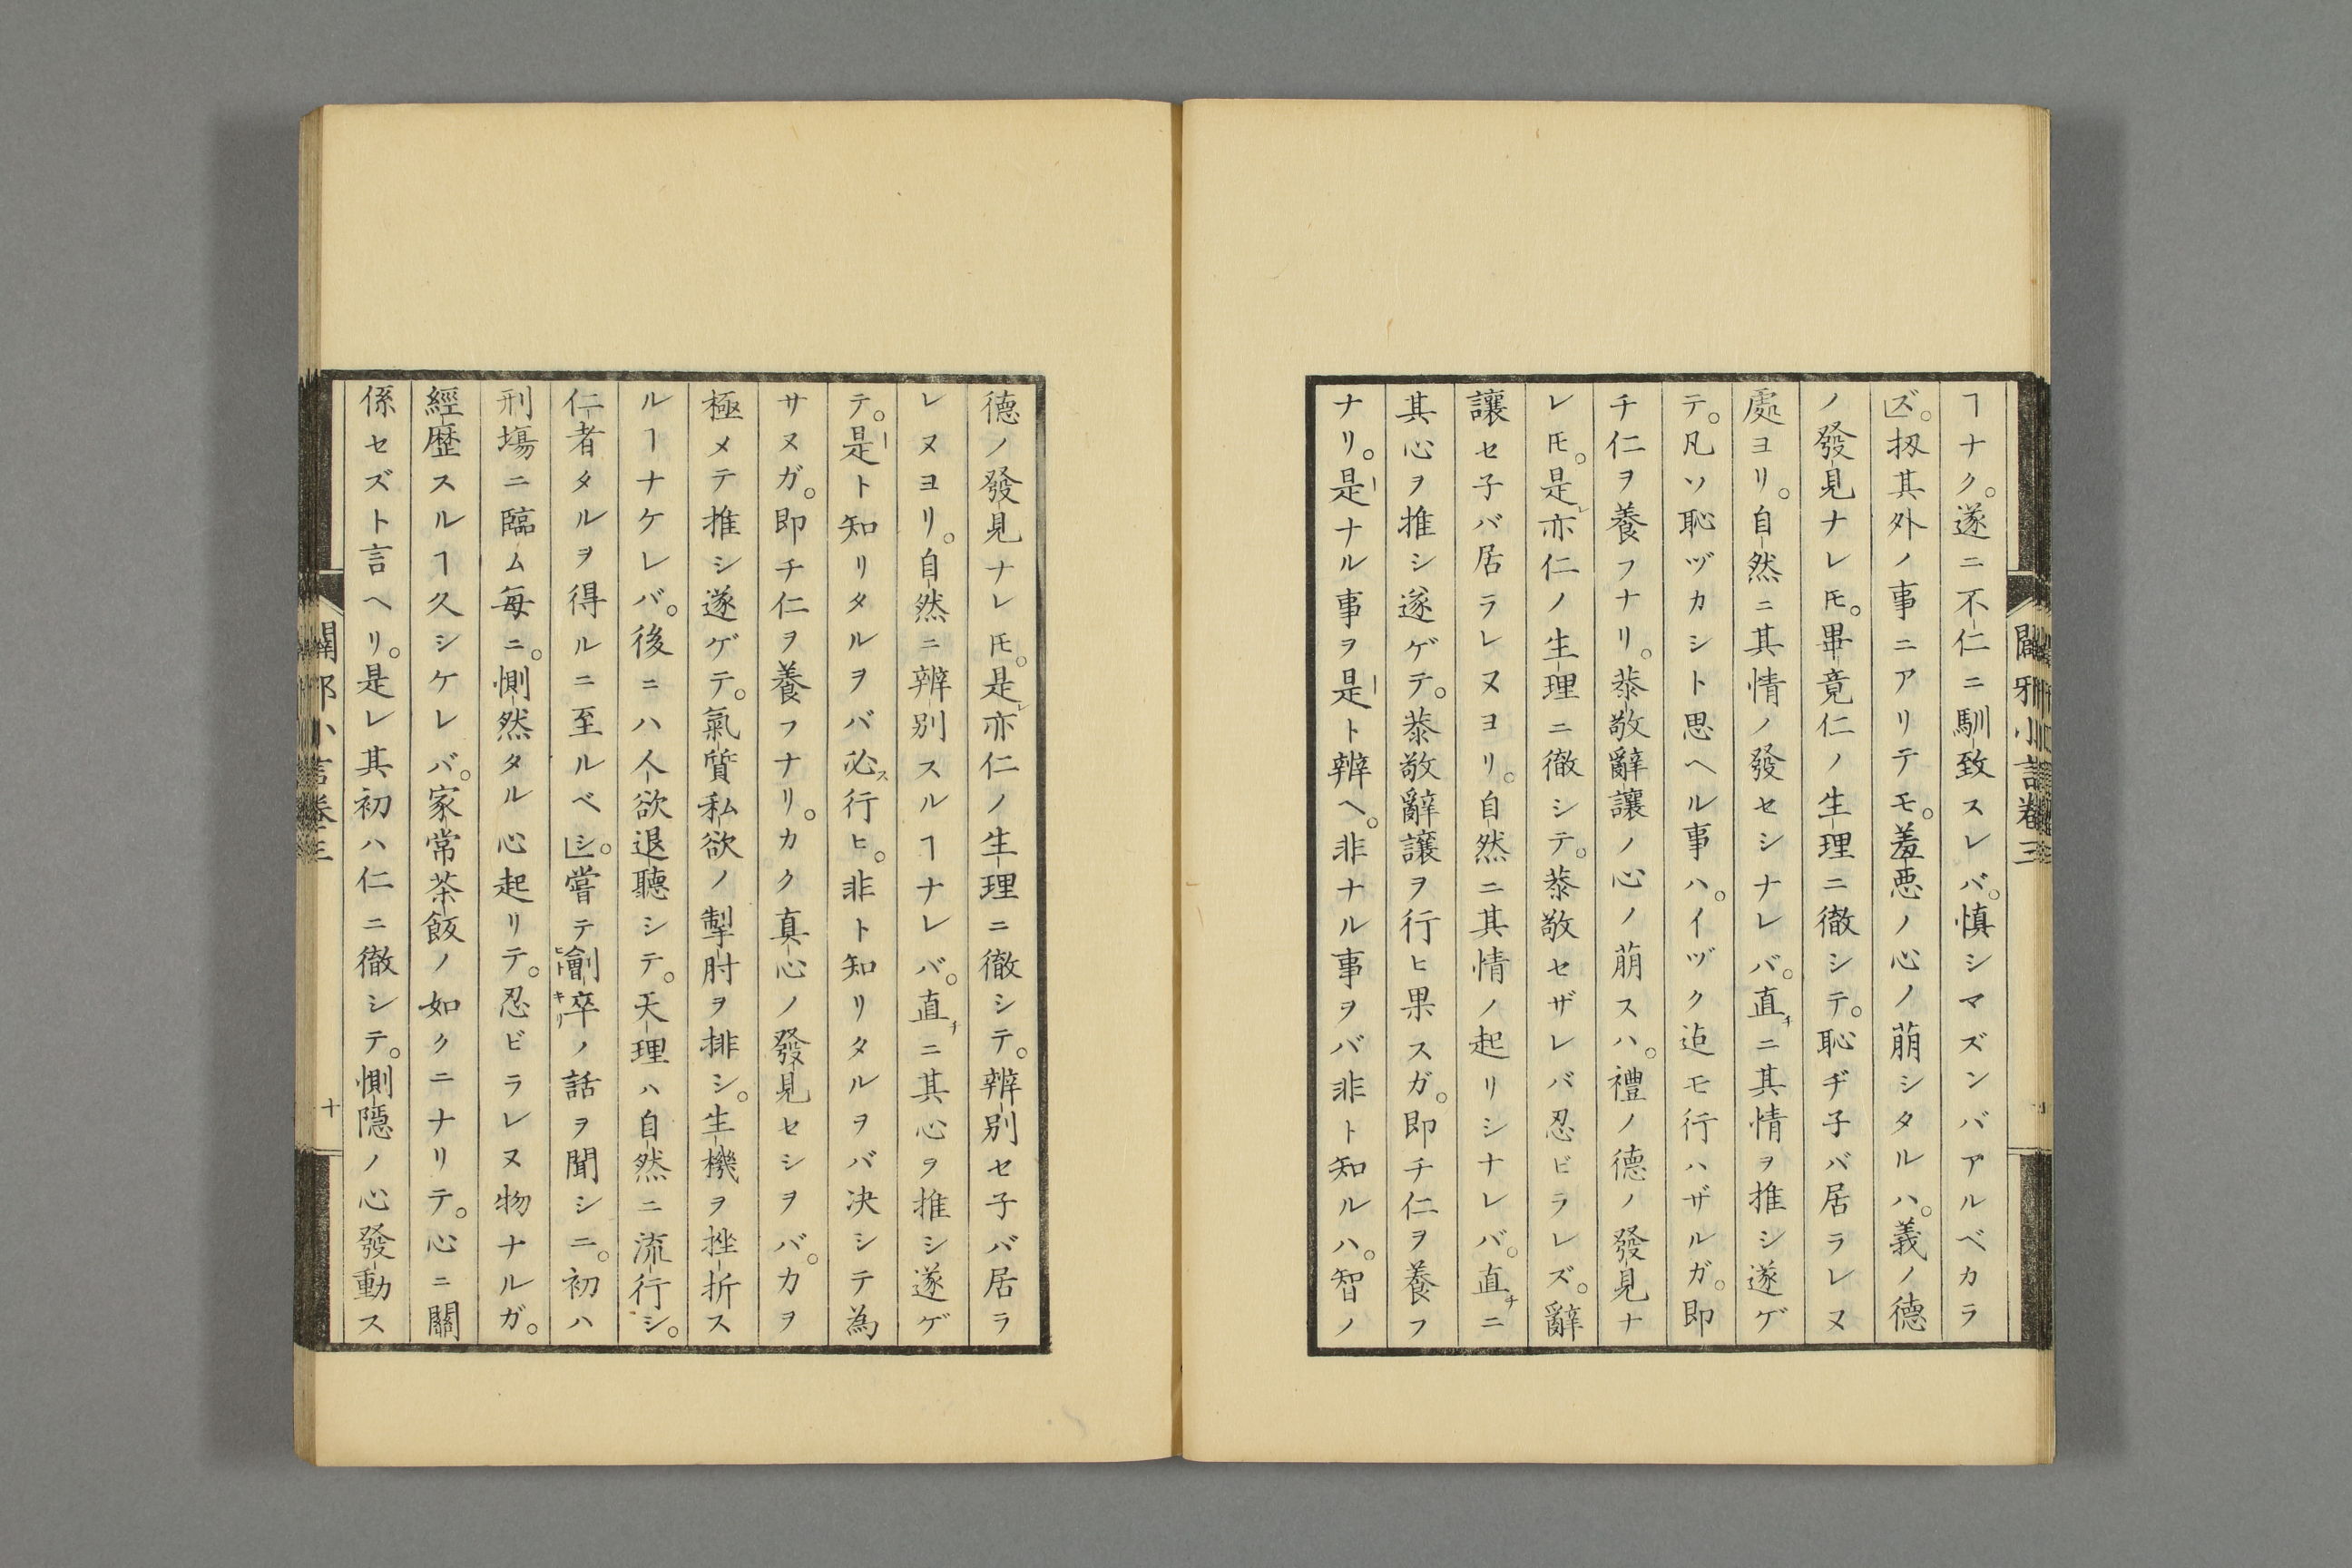 闢邪小言卷三
ヿナク。遂ニ不仁ニ馴致スレバ。慎シマズンバアルベカラ
ズ。扨其外ノ事ニアリテモ。羞惡ノ心ノ萠シタルハ。義ノ德
ノ發見ナレ𪜈。畢竟仁ノ生理ニ徹シテ。恥ヂ子バ居ラレヌ
處ヨリ。自然ニ其情ノ發セシナレバ。直チニ其情ヲ推シ遂ゲ
テ。凡ソ恥ヅカシト思ヘル事ハ。イヅク迠モ行ハザルガ。即
チ仁ヲ養フナリ。恭敬辭讓ノ心ノ萠スハ。禮ノ德ノ發見ナ
レ𪜈。是レ亦仁ノ生理ニ徹シテ。恭敬セザレバ忍ビラレズ。辭
讓セ子バ居ラレヌヨリ。自然ニ其情ノ起リシナレバ。直チニ
其心ヲ推シ遂ゲテ。恭敬辭讓ヲ行ヒ果スガ。即チ仁ヲ養フ
ナリ。是ーナル事ヲ是ート辨ヘ。非ナル事ヲバ非ト知ルハ。智ノ
德ノ發見ナレ𪜈。是レ亦仁ノ生理ニ徹シテ。辨別セ子バ居ラ
レヌヨリ。自然ニ辨別スルヿナレバ。直チニ其心ヲ推シ遂ゲ
テ。是ート知リタルヲバ必ス行ヒ。非ト知リタルヲバ决シテ為
サヌガ。即チ仁ヲ養フナリ。カク真心ノ發見セシヲバ。力ヲ
極メテ推シ遂ゲテ。氣質私欲ノ掣肘ヲ排シ。生機ヲ挫折ス
ルヿナケレバ。後ニハ人欲退聽シテ。天理ハ自然ニ流行シ。
仁者タルヲ得ルニ至ルベシ。嘗テ劊卒ヒトキリノ話ヲ聞シニ。初ハ
刑塲ニ臨ム毎ニ。惻然タル心起リテ。忍ビラレヌ物ナルガ。
經歷スルヿ久シケレバ。家常茶飯ノ如クニナリテ。心ニ關
係セズト言ヘリ。是レ其初ハ仁ニ徹シテ。惻隱ノ心發動ス
闢邪小言卷三
十